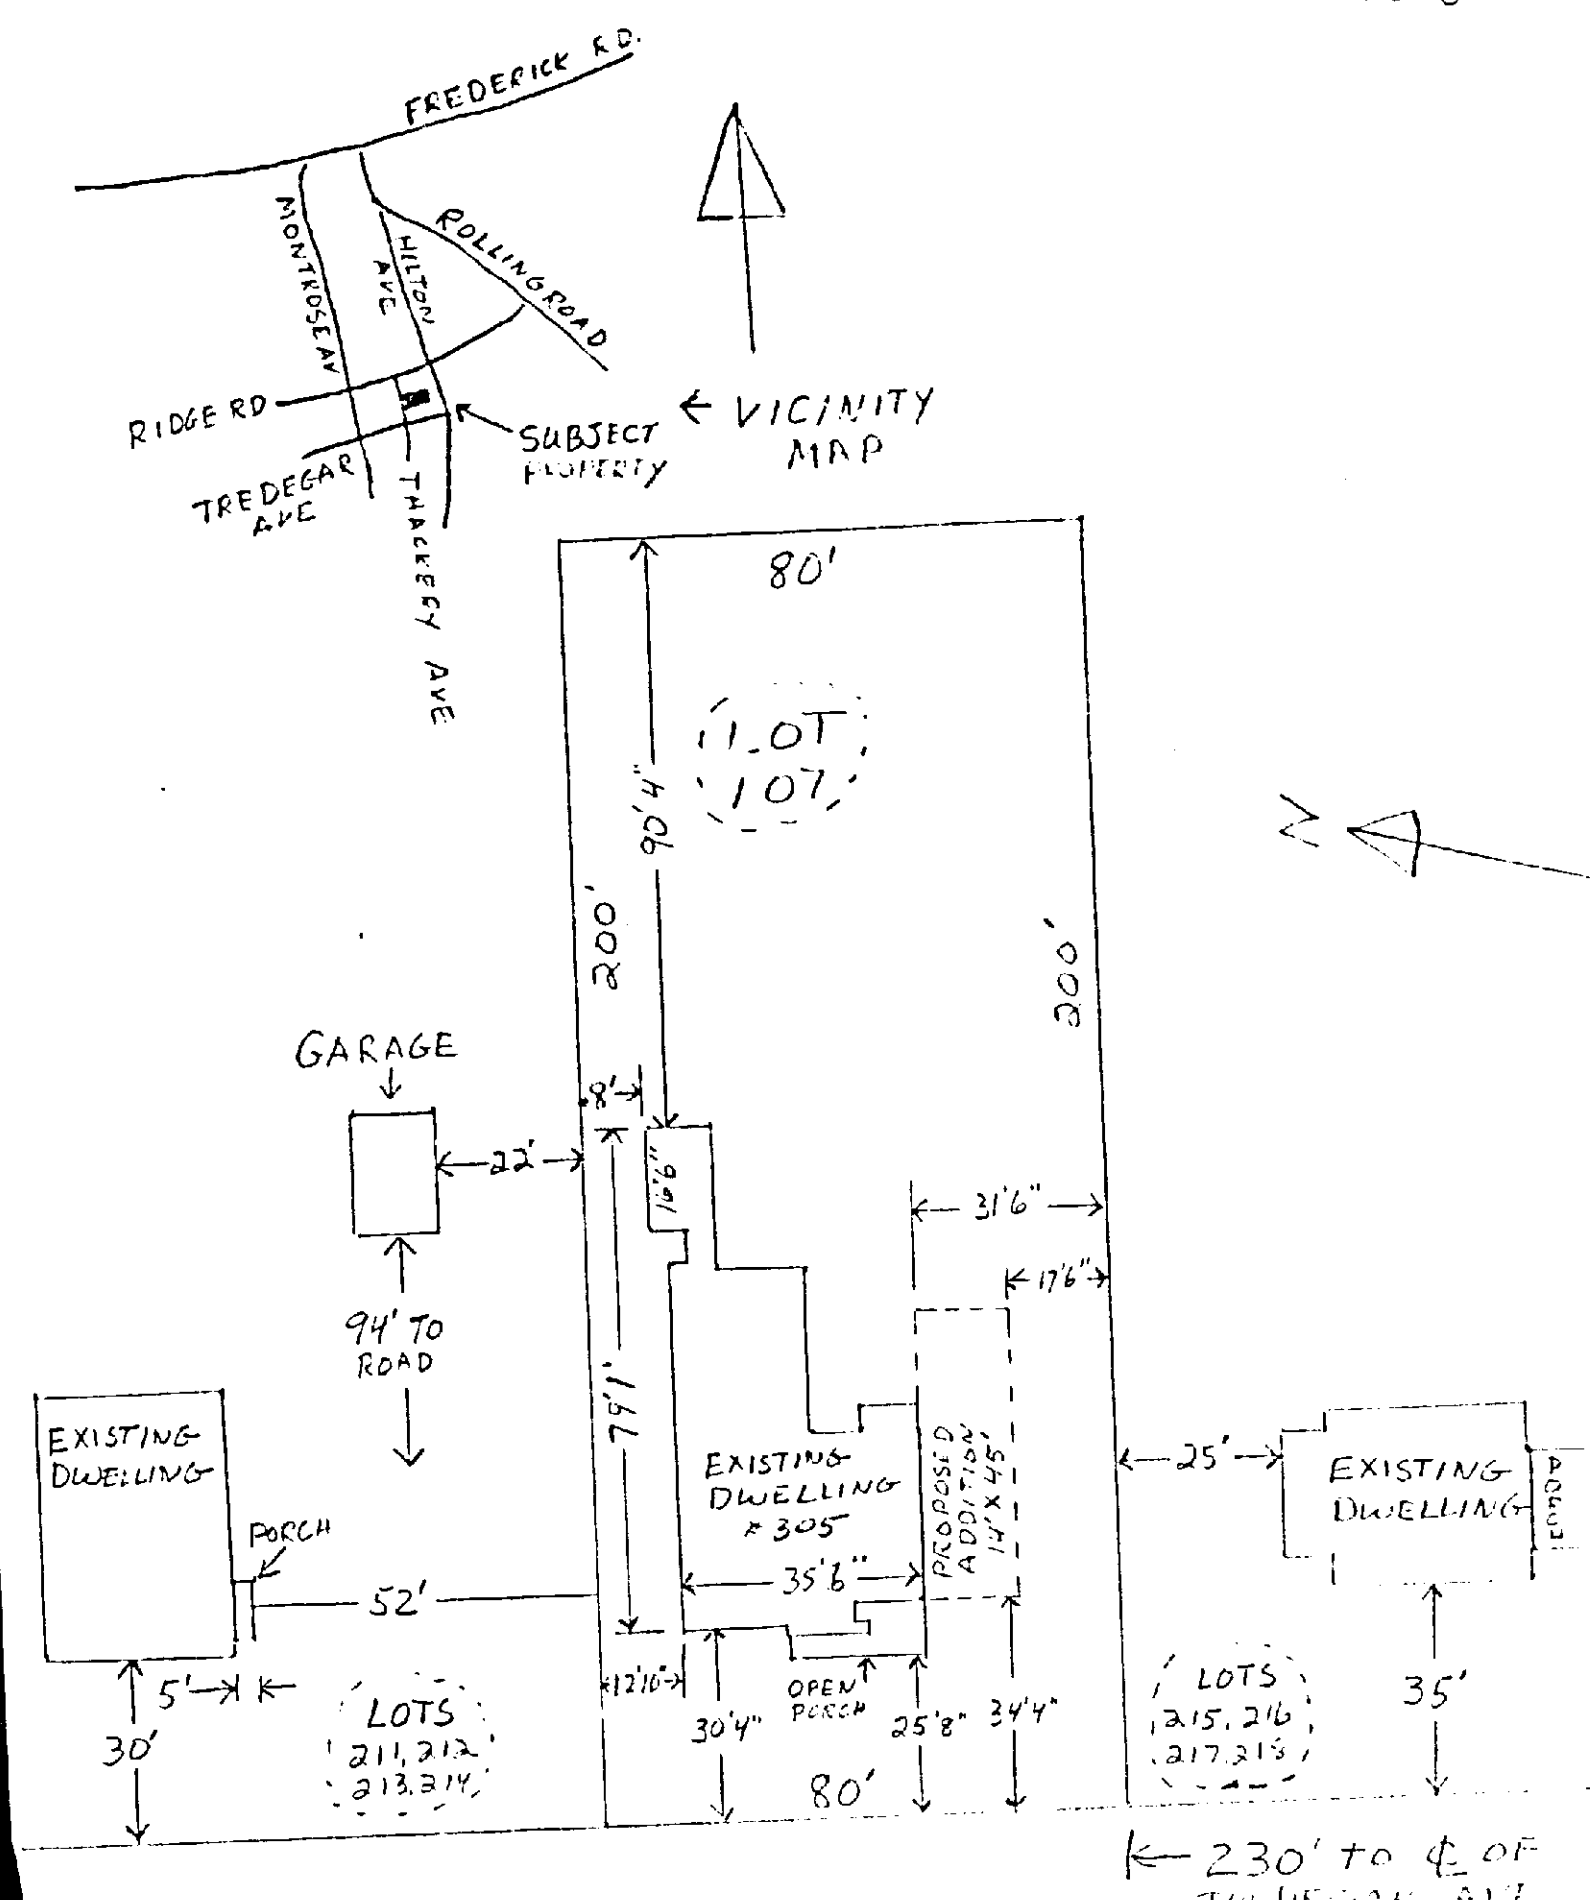 FREDERICK RD.
MONTROSE AV
HILTON
AVE
ROLLING ROAD
RIDGE RD
TREDEGAR
AVE
THACKERY AVE
SUBJECT
PROPERTY
← VICINITY
MAP
80'
LOT
107
90'4"
200'
200'
N
GARAGE
8'
22'
16'6"
31'6"
17'6"
94' TO
ROAD
79'1'
EXISTING
DWELLING
PORCH
52'
5'
30'
LOTS
211, 212
213, 214
EXISTING
DWELLING
# 305
35'6"
PROPOSED
ADDITION
14' X 45'
12'10"
30'4"
OPEN
PORCH
25'8"
34'4"
80'
25'
EXISTING
DWELLING
LOTS
215, 216
217, 218
35'
230' TO ℄ OF